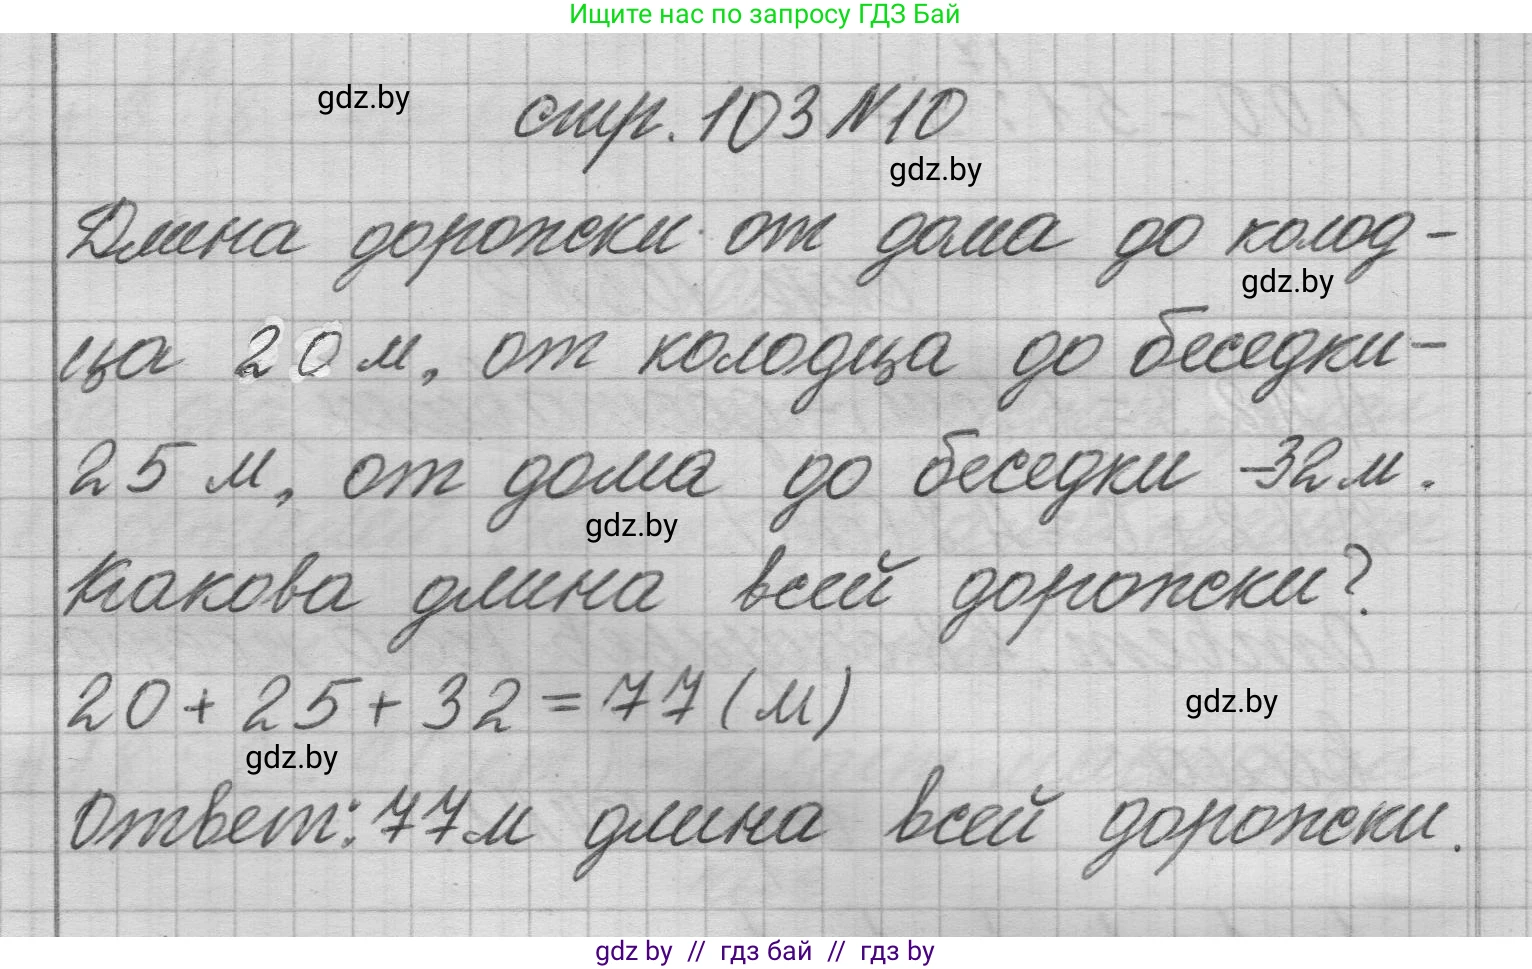 Ищите нас по запросу ГДЗ Бай
gdz.by
стр. 103 № 10
gdz.by
Длина дорожки от дома до колод-
gdz.by
ца 20 м, от колодца до беседки-
25 м, от дома до беседки -32 м.
gdz.by
Какова длина всей дорожки?
20 + 25 + 32 = 77 (м)
gdz.by
gdz.by
Ответ: 77 м длина всей дорожки.
gdz by // гдз бай // гдз by